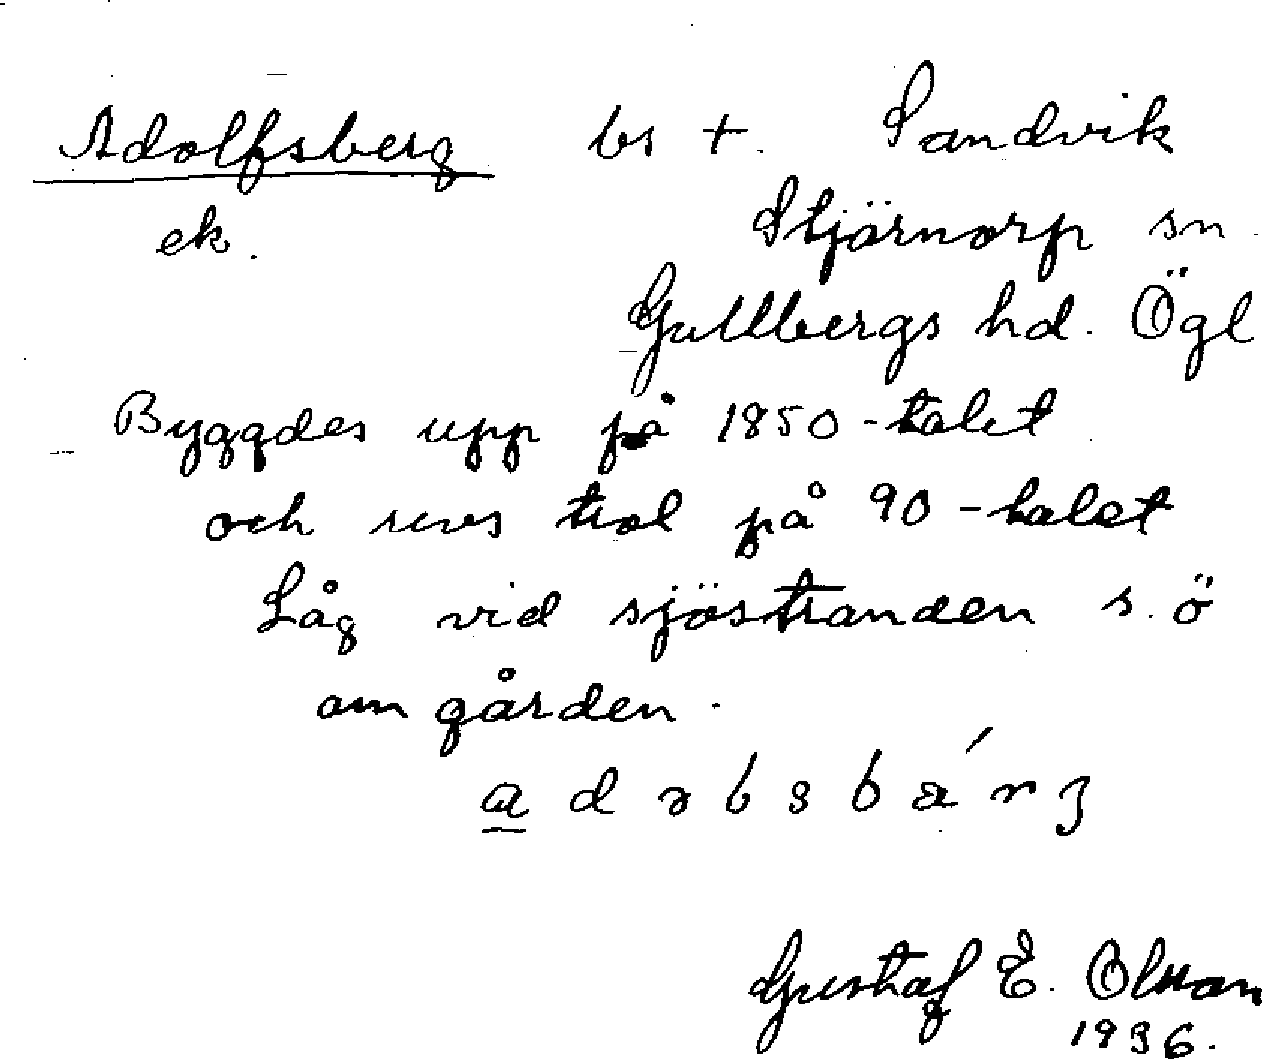 Adolfsberg bs +. Sandvik
ek. Stjärnorp sn.
Gullbergs hd. Ögl
Byggdes upp på 1850-talet
och revs trol på 90-talet
Låg vid sjöstranden s.ö
om gården.
Gustaf E. Olsson
1936.